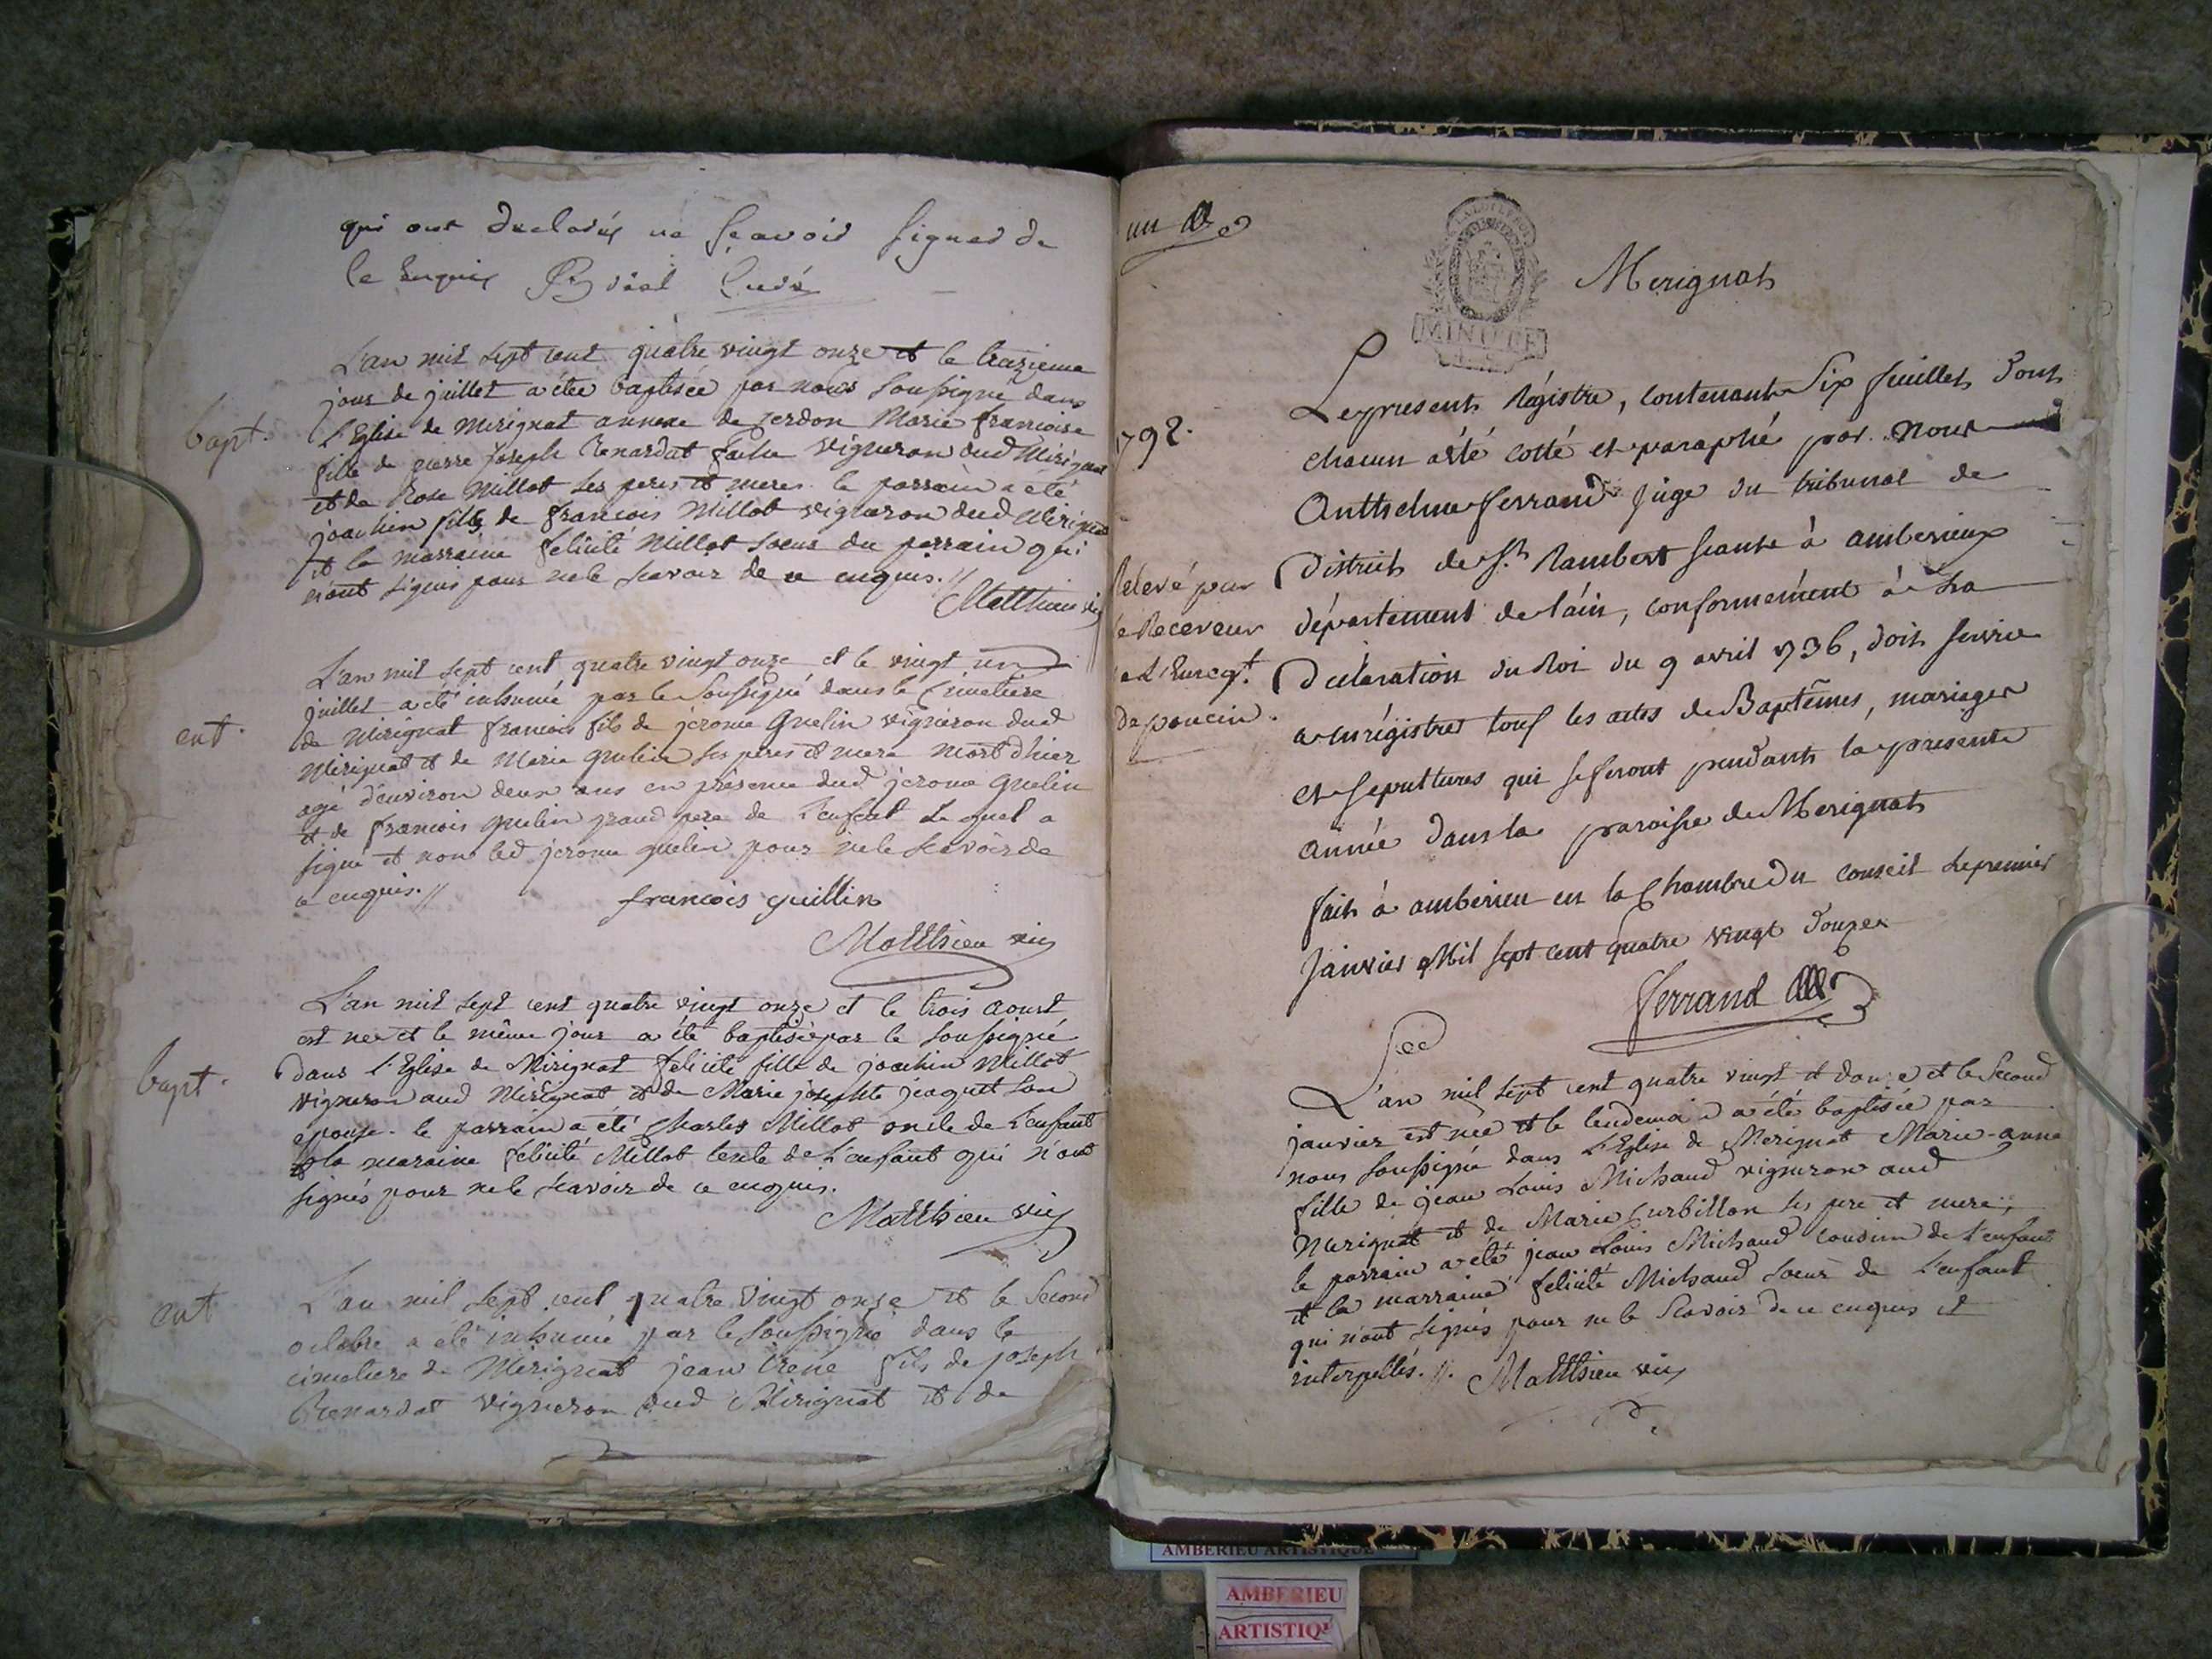 qui ont declarés ne sçavoir signer de
ce enquis vial curé
L'an mil sept cent quatre vingt onze et le treizieme
jour de juillet a étée baptisée par nous soussigné dans
bapt.
l'Eglise de merignat annexe de cerdon Marie francoise
fille de pierre joseph Renardat fache vigneron dud Merignat
et de Rose Millot ses peres et meres. le parrain a été
joachin fils de francois Millot vigneron dud Merignat
et la marraine felicité Millot soeur du parrain qui
n'ont signés pour ne le scavoir de ce enquis.//
Matthieu vic
L'an mil sept cent quatre vingt onze et le vingt un
juillet a eté inhumé par le soussigné dans le Cimetiere
ent.
de Merignat francois fils de jerome Guelin vigneron dud
Merignat et de Marie guelin ses peres et mere mort d'hier
agé d'environ deux ans en présence dud jerome guelin
et de francois guelin grand pere de l'enfant lequel a
signé et non led jerome guelin pour ne le scavoir de
ce enquis.//
francois guillin
Matthieu vic
L'an mil sept cent quatre vingt onze et le trois aoust
est née et le même jour a été baptisée par le soussigné
bapt.
dans l'Eglise de Merignat felicité fille de joachin Millot
vigneron aud Merignat et de Marie josephte jaquet son
epouse. le parrain a été Charles Millot oncle de l'enfant
et la maraine felicité Millot tente de l'enfant qui n'ont
signés pour ne le scavoir de ce enquis.
Matthieu vic
ent
L'an mil sept cent quatre vingt onze et le second
octobre a été inhumé par le soussigné dans le
cimetiere de Merignat jean Irene fils de joseph
Renardat vigneron dud Merignat et de
un
Merignat
MINUTE
Le present Régistre, contenant Six feuillets dont
1792.
chacun a été cotté et paraphé par Nous
Anthelme ferrand juge du tribunal de
District de St. Rambert seante à amberieux
relevé par
le Receveur
de l'Enregt.
de poncin.
département de l'ain, conformément à la
Déclaration du Roi du 9 avril 1736, doit servir
a enrégistrer tous les actes de Baptêmes, mariages
et sepultures qui se feront pendant la presente
année dans la paroisse de Merignat
fait à amberieu en la Chambre du conseil le premier
Janvier Mil sept cent quatre vingt douze
ferrand
L'an mil sept cent quatre vingt et douze et le second
janvier est née et le lendemain a été baptisée par
nous soussigné dans l'Eglise de Merignat Marie-anne
fille de jean Louis Michaud vigneron aud
Merignat et de Marie Curbillon ses pere et mere,
le parrain a été jean Louis Michaud cousin de l'enfant
et la marraine felicité Michaud soeur de l'enfant
qui n'ont signés pour ne le scavoir de ce enquis et
interpellés.//. Matthieu vic
AMBERIEU ARTISTIQUE
AMBERIEU
ARTISTIQU